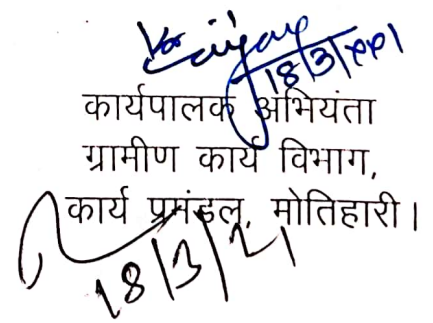 18/3/2021
कार्यपालक अभियंता
ग्रामीण कार्य विभाग,
कार्य प्रमंडल, मोतिहारी।
18/3/21